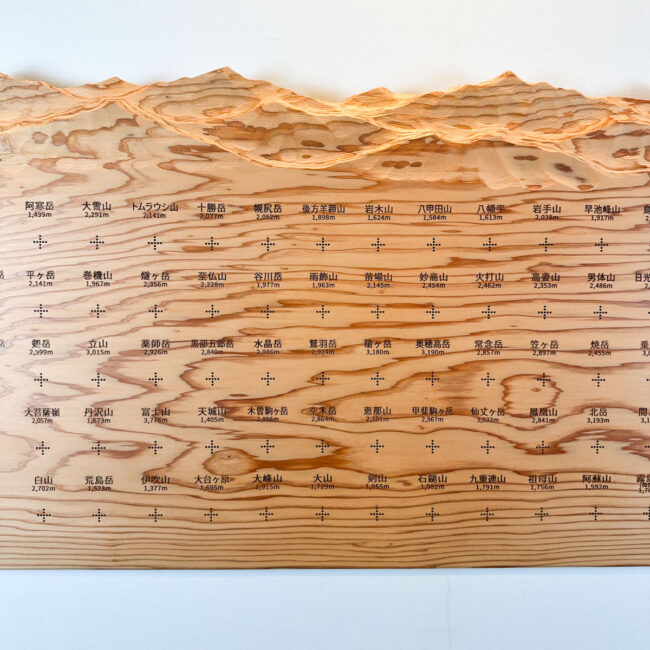 阿寒岳 大雪山 トムラウシ山 十勝岳 幌尻岳 後方羊蹄山 岩木山 八甲田山 八幡平 岩手山 早池峰山
1,499m 2,291m 2,141m 2,077m 2,052m 1,898m 1,624m 1,584m 1,613m 2,038m 1,917m
岳 平ヶ岳 巻機山 燧ヶ岳 至仏山 谷川岳 雨飾山 苗場山 妙高山 火打山 高妻山 男体山 日光
2,141m 1,967m 2,356m 2,228m 1,977m 1,963m 2,145m 2,454m 2,462m 2,353m 2,486m
岳 剱岳 立山 薬師岳 黒部五郎岳 水晶岳 鷲羽岳 槍ヶ岳 奥穂高岳 常念岳 笠ヶ岳 焼岳
2,999m 3,015m 2,926m 2,840m 2,986m 2,924m 3,180m 3,190m 2,857m 2,897m 2,455m
大菩薩嶺 丹沢山 富士山 天城山 木曽駒ヶ岳 空木岳 恵那山 甲斐駒ヶ岳 仙丈ヶ岳 鳳凰山 北岳 間
2,057m 1,673m 3,776m 1,405m 2,956m 2,864m 2,191m 2,967m 3,033m 2,841m 3,193m
白山 荒島岳 伊吹山 大台ヶ原 大峰山 大山 剣山 石鎚山 九重連山 祖母山 阿蘇山
2,702m 1,523m 1,377m 1,695m 1,915m 1,729m 1,955m 1,982m 1,791m 1,756m 1,592m